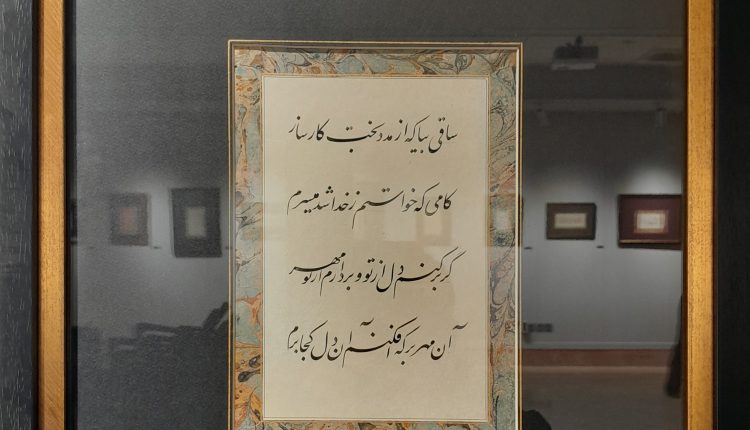 ساقی بیا که از مدد بخت کارساز
کامی که خواستم ز خدا شد میسرم
گر برکنم دل از تو و بردارم از تو مهر
آن مهر بر که افکنم آن دل کجا برم